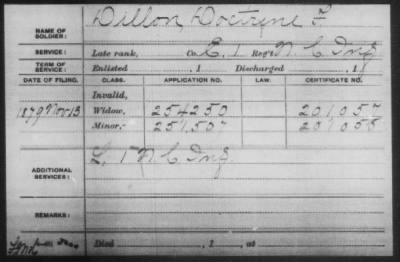 NAME OF SOLDIER: Dillon, Doctrine F
SERVICE: Late rank, Co. E, 1 Reg't N. C. Inf
TERM OF SERVICE: Enlisted , 1 Discharged , 1
DATE OF FILING. CLASS. APPLICATION NO. LAW. CERTIFICATE NO.
Invalid,
1879 Nov 13 Widow, 254250 201057
Minor, 257.507 201058
ADDITIONAL SERVICES: L, 1 N. C. Inf.
REMARKS:
Died , 1 , at